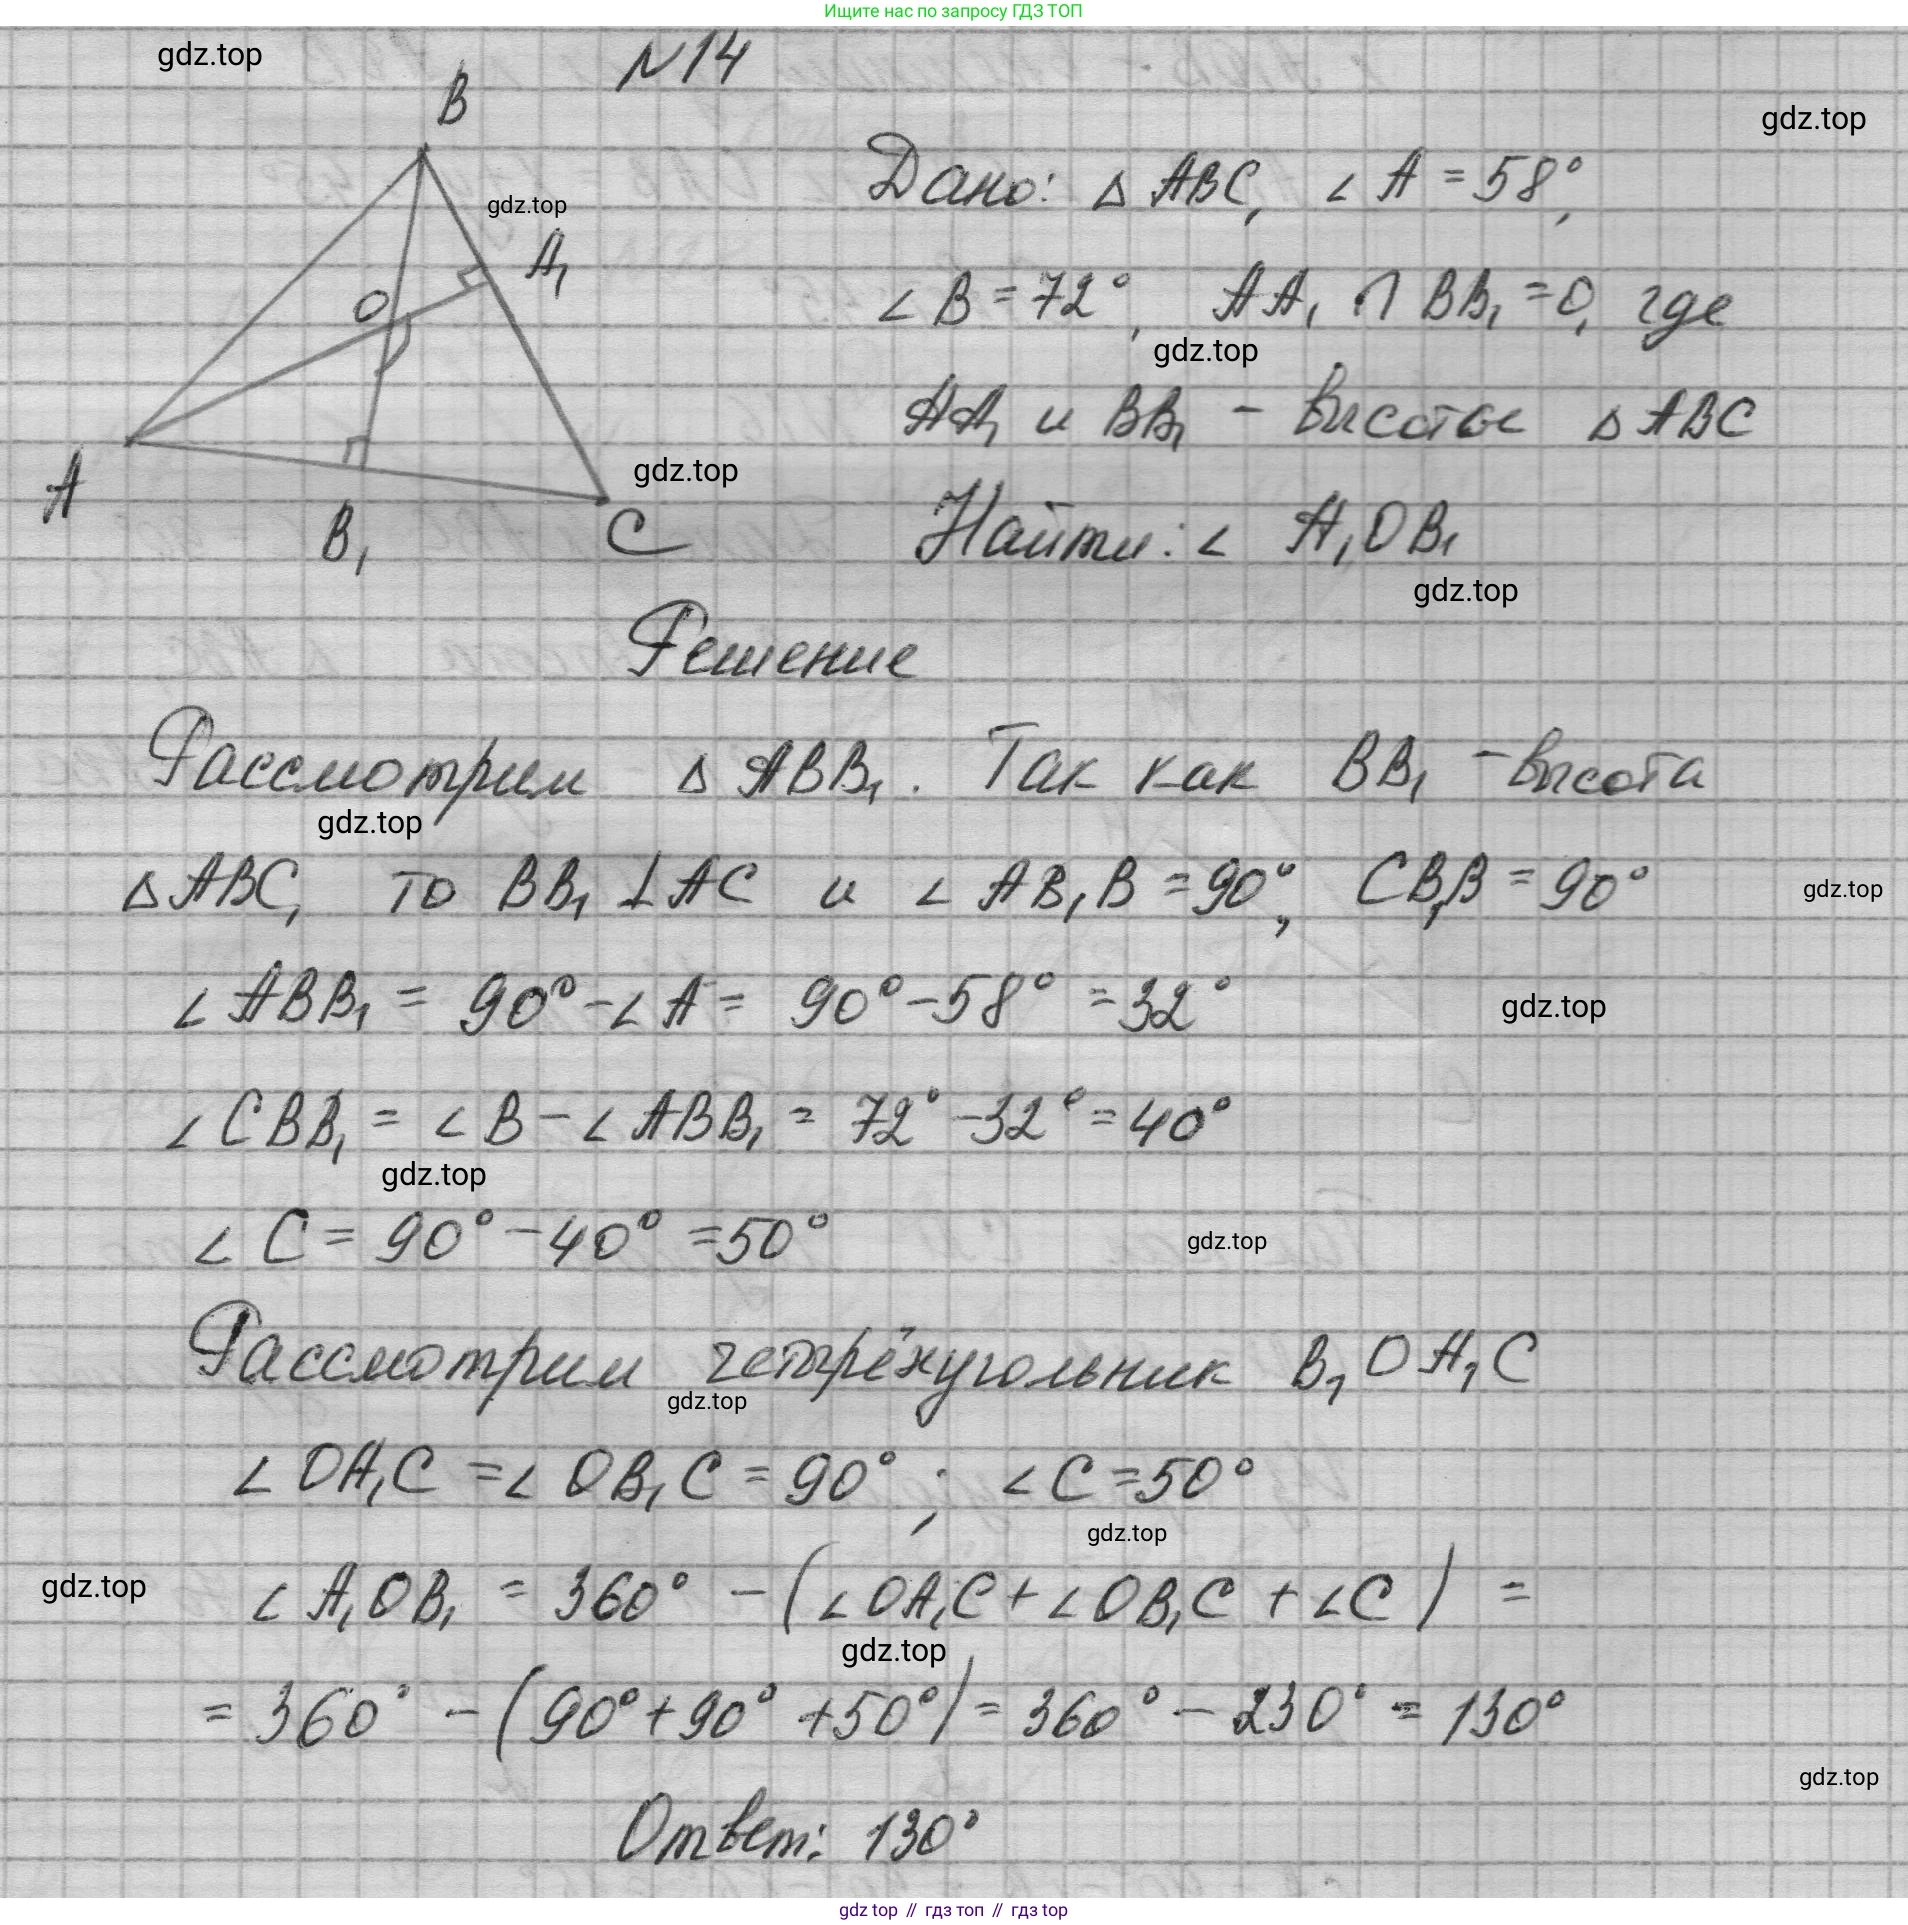 Ищите нас по запросу ГДЗ ТОП
gdz.top
N14
gdz.top
B
Дано: △ ABC, ∠ A = 58°,
gdz.top
A₁
O
∠ B = 72°, AA₁ ∩ BB₁ = O, где
gdz.top
AA₁ и BB₁ - высоты △ ABC
gdz.top
A
B₁
C
Найти: ∠ A₁OB₁
gdz.top
Решение
Рассмотрим △ ABB₁. Так как BB₁ - высота
gdz.top
△ ABC, то BB₁ ⊥ AC и ∠ AB₁B = 90°, CB₁B = 90°
gdz.top
∠ ABB₁ = 90° - ∠ A = 90° - 58° = 32°
gdz.top
∠ CBB₁ = ∠ B - ∠ ABB₁ = 72° - 32° = 40°
gdz.top
∠ C = 90° - 40° = 50°
gdz.top
Рассмотрим четырёхугольник B₁OA₁C
gdz.top
∠ OA₁C = ∠ OB₁C = 90° ; ∠ C = 50°
gdz.top
gdz.top
∠ A₁OB₁ = 360° - (∠ OA₁C + ∠ OB₁C + ∠ C) =
gdz.top
= 360° - (90° + 90° + 50°) = 360° - 230° = 130°
gdz.top
Ответ: 130°
gdz top // гдз топ // gdz top